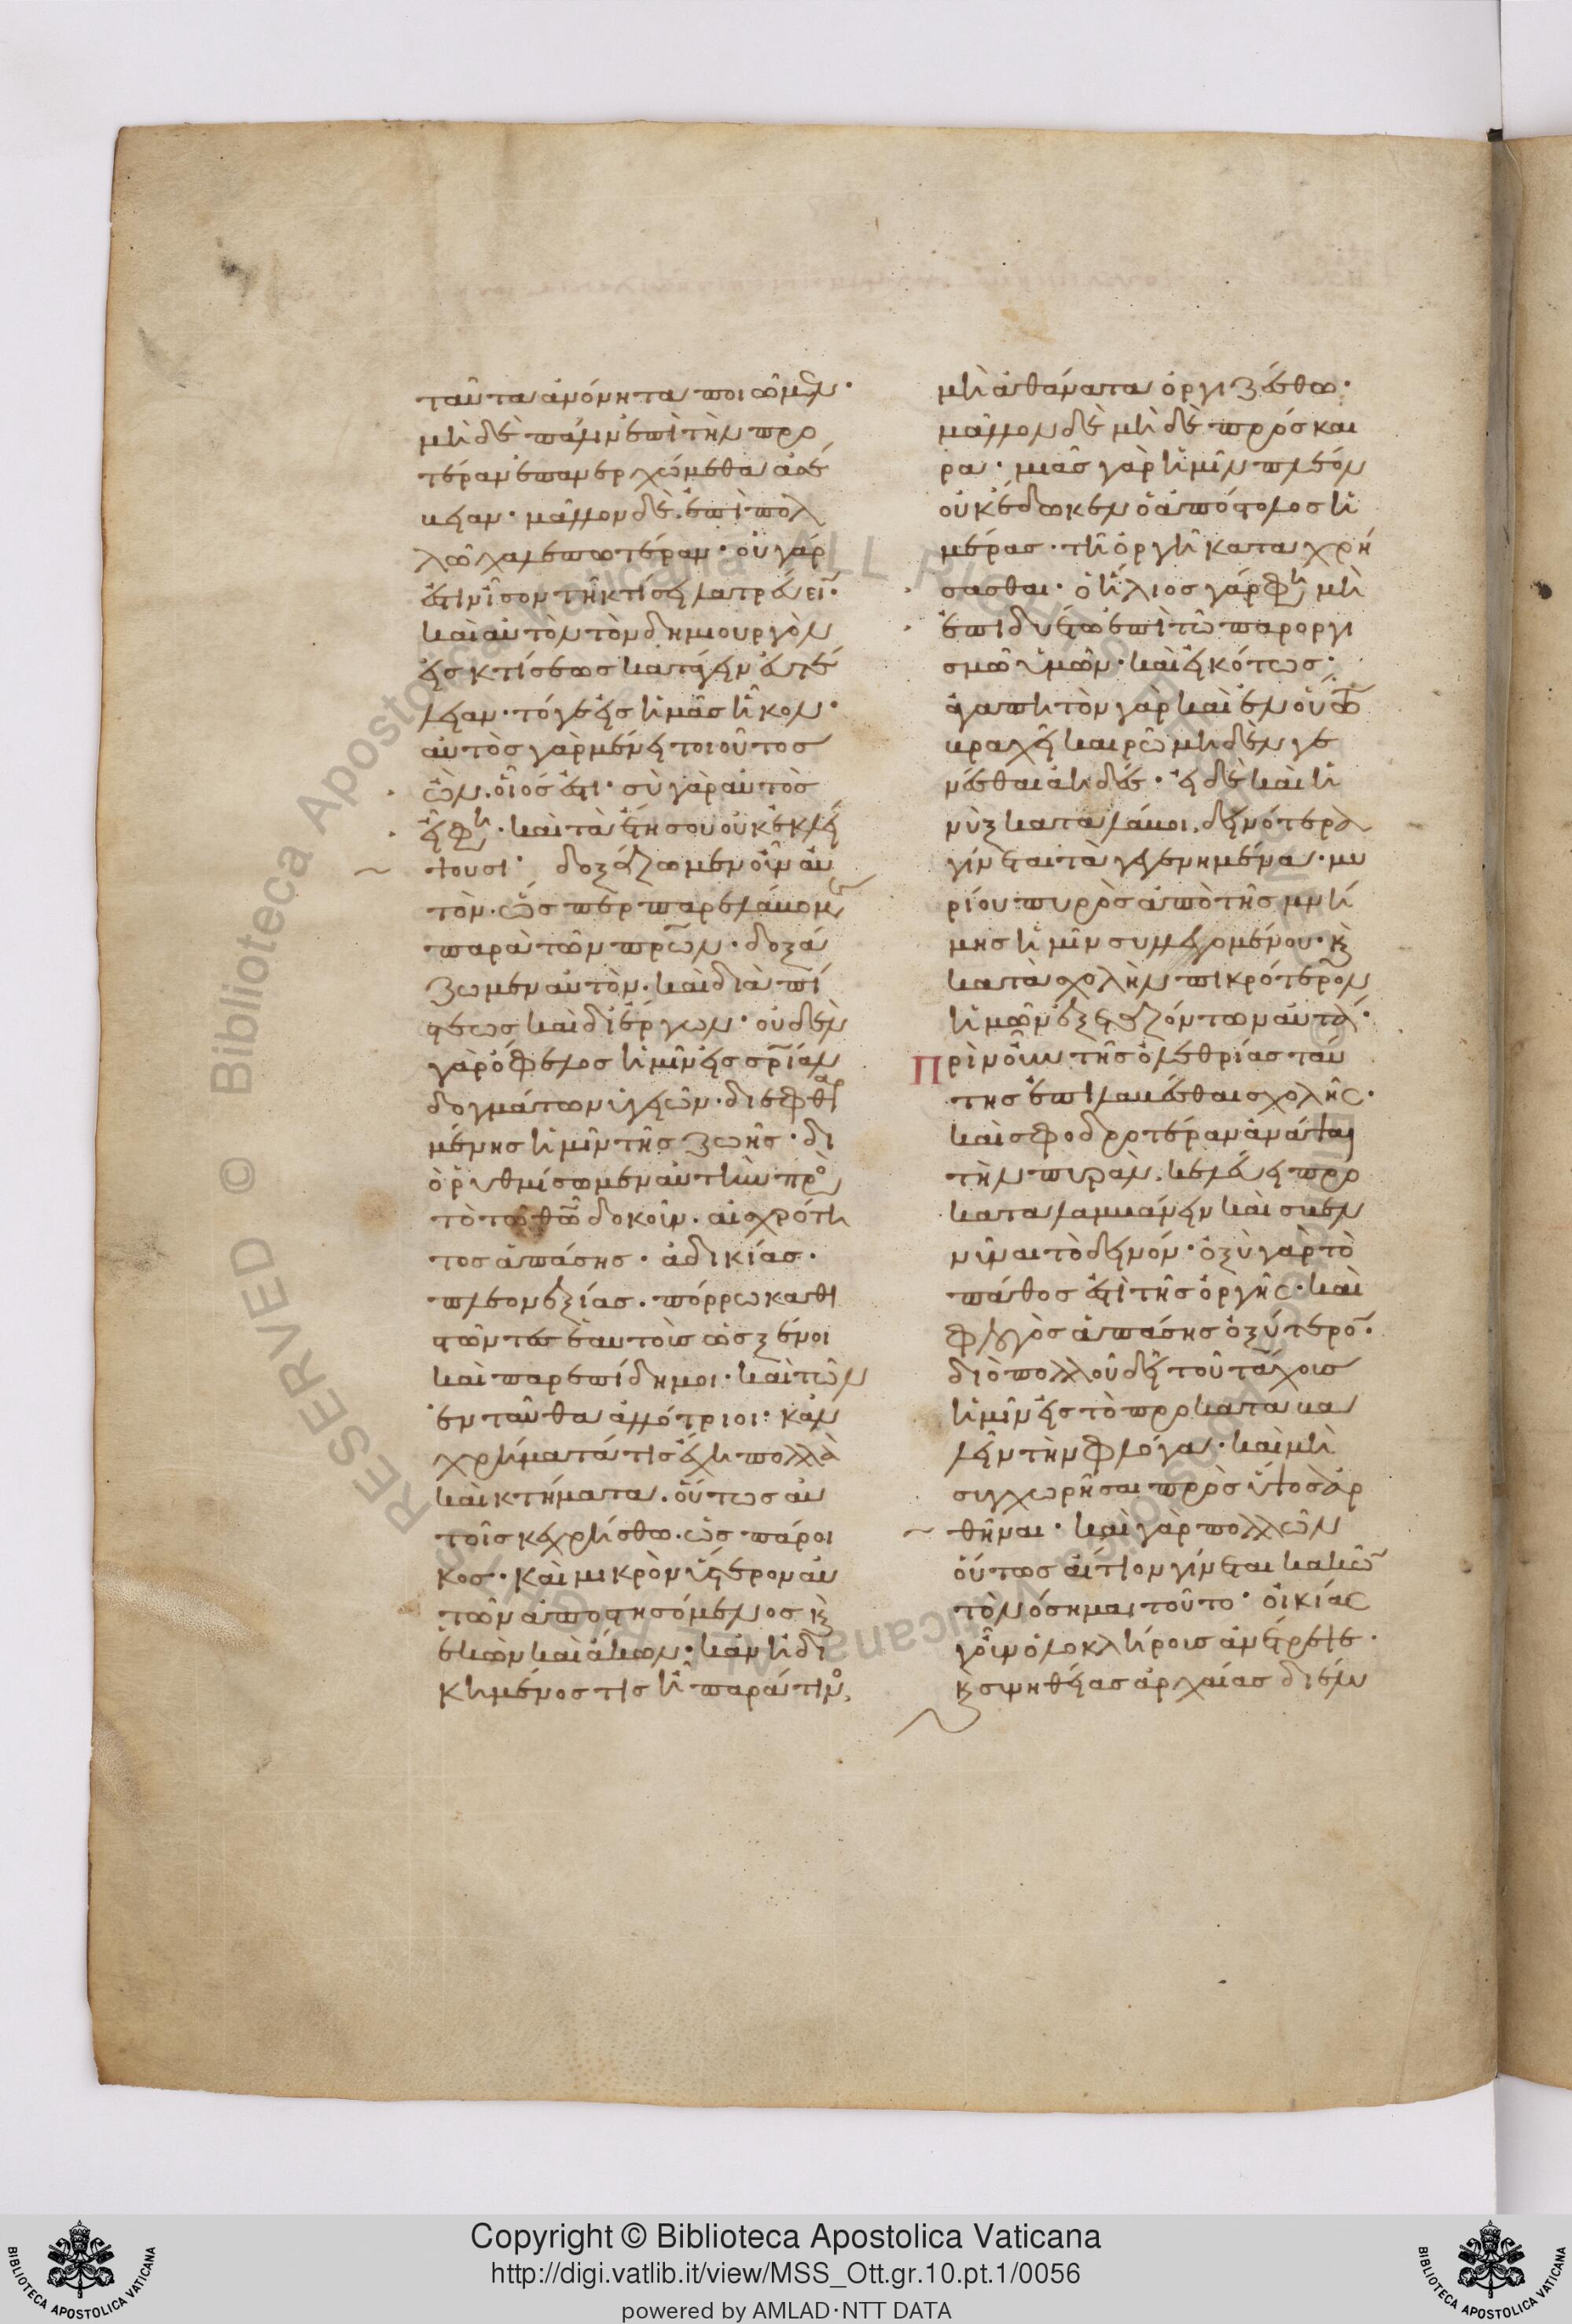 ταῦτα ἀνόνητα ποιῶμεν·
μὴ δὲ πάλιν ἐπὶ τὴν προ
τέραν ἐπανερχώμεθα ἀσέ
βειαν· μᾶλλον δὲ ἐπὶ πολ
λῶ χαλεπωτέραν· οὐ γάρ
ἐστιν ἴσον τῆ κτίσει λατρεύειν·
καὶ αὐτὸν τὸν δημιουργὸν
εἰς κτίσεως κατάγειν εὐτέ
λειαν· τό γε εἰς ἡμᾶς ἧκον·
αὐτὸς γὰρ μένει τοιοῦτος
ὢν, οἷός ἐστι· σὺ γὰρ αὐτὸς
εἶ φη· καὶ τὰ ἔτη σου οὐκ ἐκλεί
ψουσι· δοξάζωμεν οὖν αὐ
τὸν. ὥσπερ παρελάβομεν
παρὰ τῶν πρων· δοξά
ζωμεν αὐτὸν. καὶ διὰ πί
στεως καὶ δι ἔργων· οὐδὲν
γὰρ ὄφελος ἡμῖν εἰς σρίαν
δογμάτων ὑγειῶν· διεφθαρ
μένης ἡμῖν τῆς ζωῆς· δι
ὸ ῥυθμίσωμεν αὐτὴν πρὸ
τὸ τῶ θῶ δοκοῦν. αἰσχρότη
τος ἁπάσης· ἀδικίας·
πλεονεξίας. πόρρω καθι
στῶντες ἑαυτοὺς ὡς ξένοι
καὶ παρεπίδημοι· καὶ τῶν
ἐνταῦθα ἀλλότριοι· κἂν
χρήματά τις ἔχη πολλὰ
καὶ κτήματα. οὕτως αὐ
τοῖς κεχρήσθω. ὡς πάροι
κος· καὶ μικρὸν ὕστερον αὐ
τῶν ἀποστησόμενος κ
ἑκὼν καὶ ἄκων· κἂν ἠδι
κημένος τις ἦ παρά τινος,
μὴ ἀθάνατα ὀργιζέσθω·
μᾶλλον δὲ μὴ δὲ πρόσκαι
ρα· μιᾶς γὰρ ἡμῖν πλέον
οὐκ ἔδωκεν ὁ ἀπόστολος ἡ
μέρας· τῆ ὀργῆ καταχρή
σασθαι· ὁ ἥλιος γάρ φη μὴ
ἐπιδυέτω ἐπὶ τῶ παροργι
σμῶ ὑμῶν· καὶ εἰκότως·
ἀγαπητὸν γὰρ καὶ ἐν οὕτω
βραχεῖ καιρῶ μηδὲν γε
νέσθαι ἀηδές· εἰ δὲ καὶ ἡ
νὺξ καταλάβοι, δεινότερα
γίνεται τὰ γεγενημένα· μυ
ρίου πυρὸς ἀπὸ τῆς μνή
μης ἡμῖν συλλεγομένου· κ
κατὰ σχολὴν πικρότερον
ἡμῶν ἐξεταζόντων αὐτά·
Πρὶν οὖν τῆς ὀλεθρίας ταύ
της ἐπιλαβέσθαι σχολῆς·
καὶ σφοδροτέραν ἀνάψαι
τὴν πυρὰν. κελεύει προ
καταλαμβάνειν καὶ σβεν
νῦναι τὸ δεινόν· ὀξὺ γὰρ τὸ
πάθος ἐστὶ τῆς ὀργῆς· καὶ
φλογὸς ἁπάσης ὀξύτερον·
διὸ πολλοῦ δεῖ τοῦ τάχους
ἡμῖν εἰς τὸ προκαταλα
βεῖν τὴν φλόγα· καὶ μὴ
συγχωρῆσαι πρὸς ὕψος ἀρ
θῆναι· καὶ γὰρ πολλῶν
οὕτως αἴτιον γίνεται κακῶν
τὸ νόσημα τοῦτο· οἰκίας
γοῦν ὁλοκλήρους ἀνέτρεψε·
κ συνηθείας ἀρχαίας διέλυ